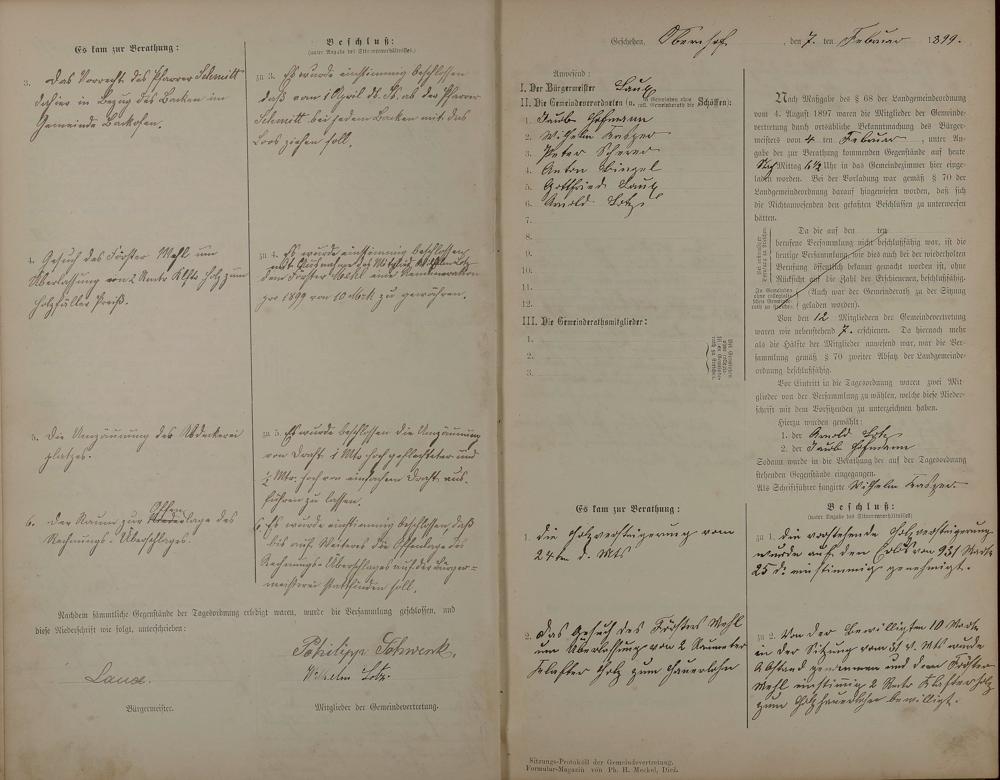 Es kam zur Berathung:
3. Das Vorrecht des Pfarrer Schmitt
dahier in Bezug des Backen im
Gemeinde Backofen.
4. Gesuch des Förster Mehl um
Überlassung von 2 Rmtr Klftr Holz zum
Holzfäller Preiß.
5. Die Umzäunung des
platzes.
6. Der Raum zur Offenlage des
Rechnungs-Überschlages.
Beschluß:
(unter Angabe des Stimmenverhältnisses.)
zu 3. Es wurde einstimmig beschlossen
daß vom 1 April ds. Js. ab der Pfarrer
Schmitt bei jedem Backen mit das
Loos ziehen soll.
zu 4. Es wurde einstimmig beschlossen
mit Ausnahme des Mitglied
dem Förster Mehl eine Remuneration
pro 1899 von 10 Mrk. zu gewähren.
zu 5. Es wurde beschlossen die Umzäunung
von Draht 1 Mtr. hoch geflochtener und
½ Mtr. hoch von einfachem Draht aus-
führen zu lassen.
6. Es wurde einstimmig beschlossen, daß
bis auf Weiteres die Offenlage des
Rechnungs-Überschlages auf der Bürger=
meisterei stattfinden soll.
Nachdem sämmtliche Gegenstände der Tagesordnung erledigt waren, wurde die Versammlung geschlossen, und
diese Niederschrift wie folgt, unterschrieben:
Philipp Schwenk.
Wilhelm Lotz.
Bürgermeister.
Mitglieder der Gemeindevertretung.
Geschehen, Obernhof, den 7. ten Februar 1899.
Anwesend:
I. Der Bürgermeister
II. Die Gemeindeverordneten (u. in Gemeinden ohne coll. Gemeinderath die Schöffen):
1. Jacob Hofmann
2. Wilhelm Kasper
3. Peter Scherer
4. Anton
5. Gottfried
6. Arnold Lotz
7.
8.
9.
10.
11.
12.
III. Die Gemeinderathsmitglieder:
1.
2.
3.
Nach Maßgabe des § 68 der Landgemeindeordnung
vom 4. August 1897 waren die Mitglieder der Gemeinde-
vertretung durch ortsübliche Bekanntmachung des Bürger-
meisters vom 4 ten Februar, unter An-
gabe der zur Berathung kommenden Gegenstände auf heute
Nachmittag 6½ Uhr in das Gemeindezimmer hier einge-
laden worden. Bei der Vorladung war gemäß § 70 der
Landgemeindeordnung darauf hingewiesen worden, daß sich
die Nichtanwesenden den gefaßten Beschlüssen zu unterwerfen
hätten.
Da die auf den ten
berufene Versammlung nicht beschlußfähig war, ist die
heutige Versammlung, wie dies auch bei der wiederholten
Berufung öffentlich bekannt gemacht worden ist, ohne
Rücksicht auf die Zahl der Erschienenen, beschlußfähig.
Auch war der Gemeinderath zu der Sitzung
geladen worden.
Von den 12 Mitgliedern der Gemeindevertretung
waren wie nebenstehend 7. erschienen. Da hiernach mehr
als die Hälfte der Mitglieder anwesend war, war die Ver-
sammlung gemäß § 70 zweiter Absatz der Landgemeinde-
ordnung beschlußfähig.
Vor Eintritt in die Tagesordnung waren zwei Mit-
glieder von der Versammlung zu wählen, welche diese Nieder-
schrift mit dem Vorsitzenden zu unterzeichnen haben.
Hierzu wurden gewählt:
1. der Arnold Lotz
2. der Jacob Hofmann
Sodann wurde in die Berathung der auf der Tagesordnung
stehenden Gegenstände eingegangen.
Als Schriftführer fungirte Wilhelm Kasper.
Es kam zur Berathung:
1. Die Holzversteigerung vom
24ten d. Mts
2. Das Gesuch des Försters Mehl
um Überlassung von 2 Raummeter
Klafter Holz zum Hauerlohn
Beschluß:
(unter Angabe des Stimmenverhältnisses)
zu 1. Die vorstehende Holzversteigerung
wurde auf den Erlös von 931 Mark
25 d. einstimmig genehmigt.
zu 2. Von der bewilligten 10 Mark
in der Sitzung vom 31 v. Mts wurde
Abstand genommen und dem Förster
Mehl einstimmig 2 Rmtr Klafterholz
zum bewilligt.
Sitzungs-Protokoll der Gemeindevertretung.
Formular-Magazin von Ph. H. Meckel, Diez.